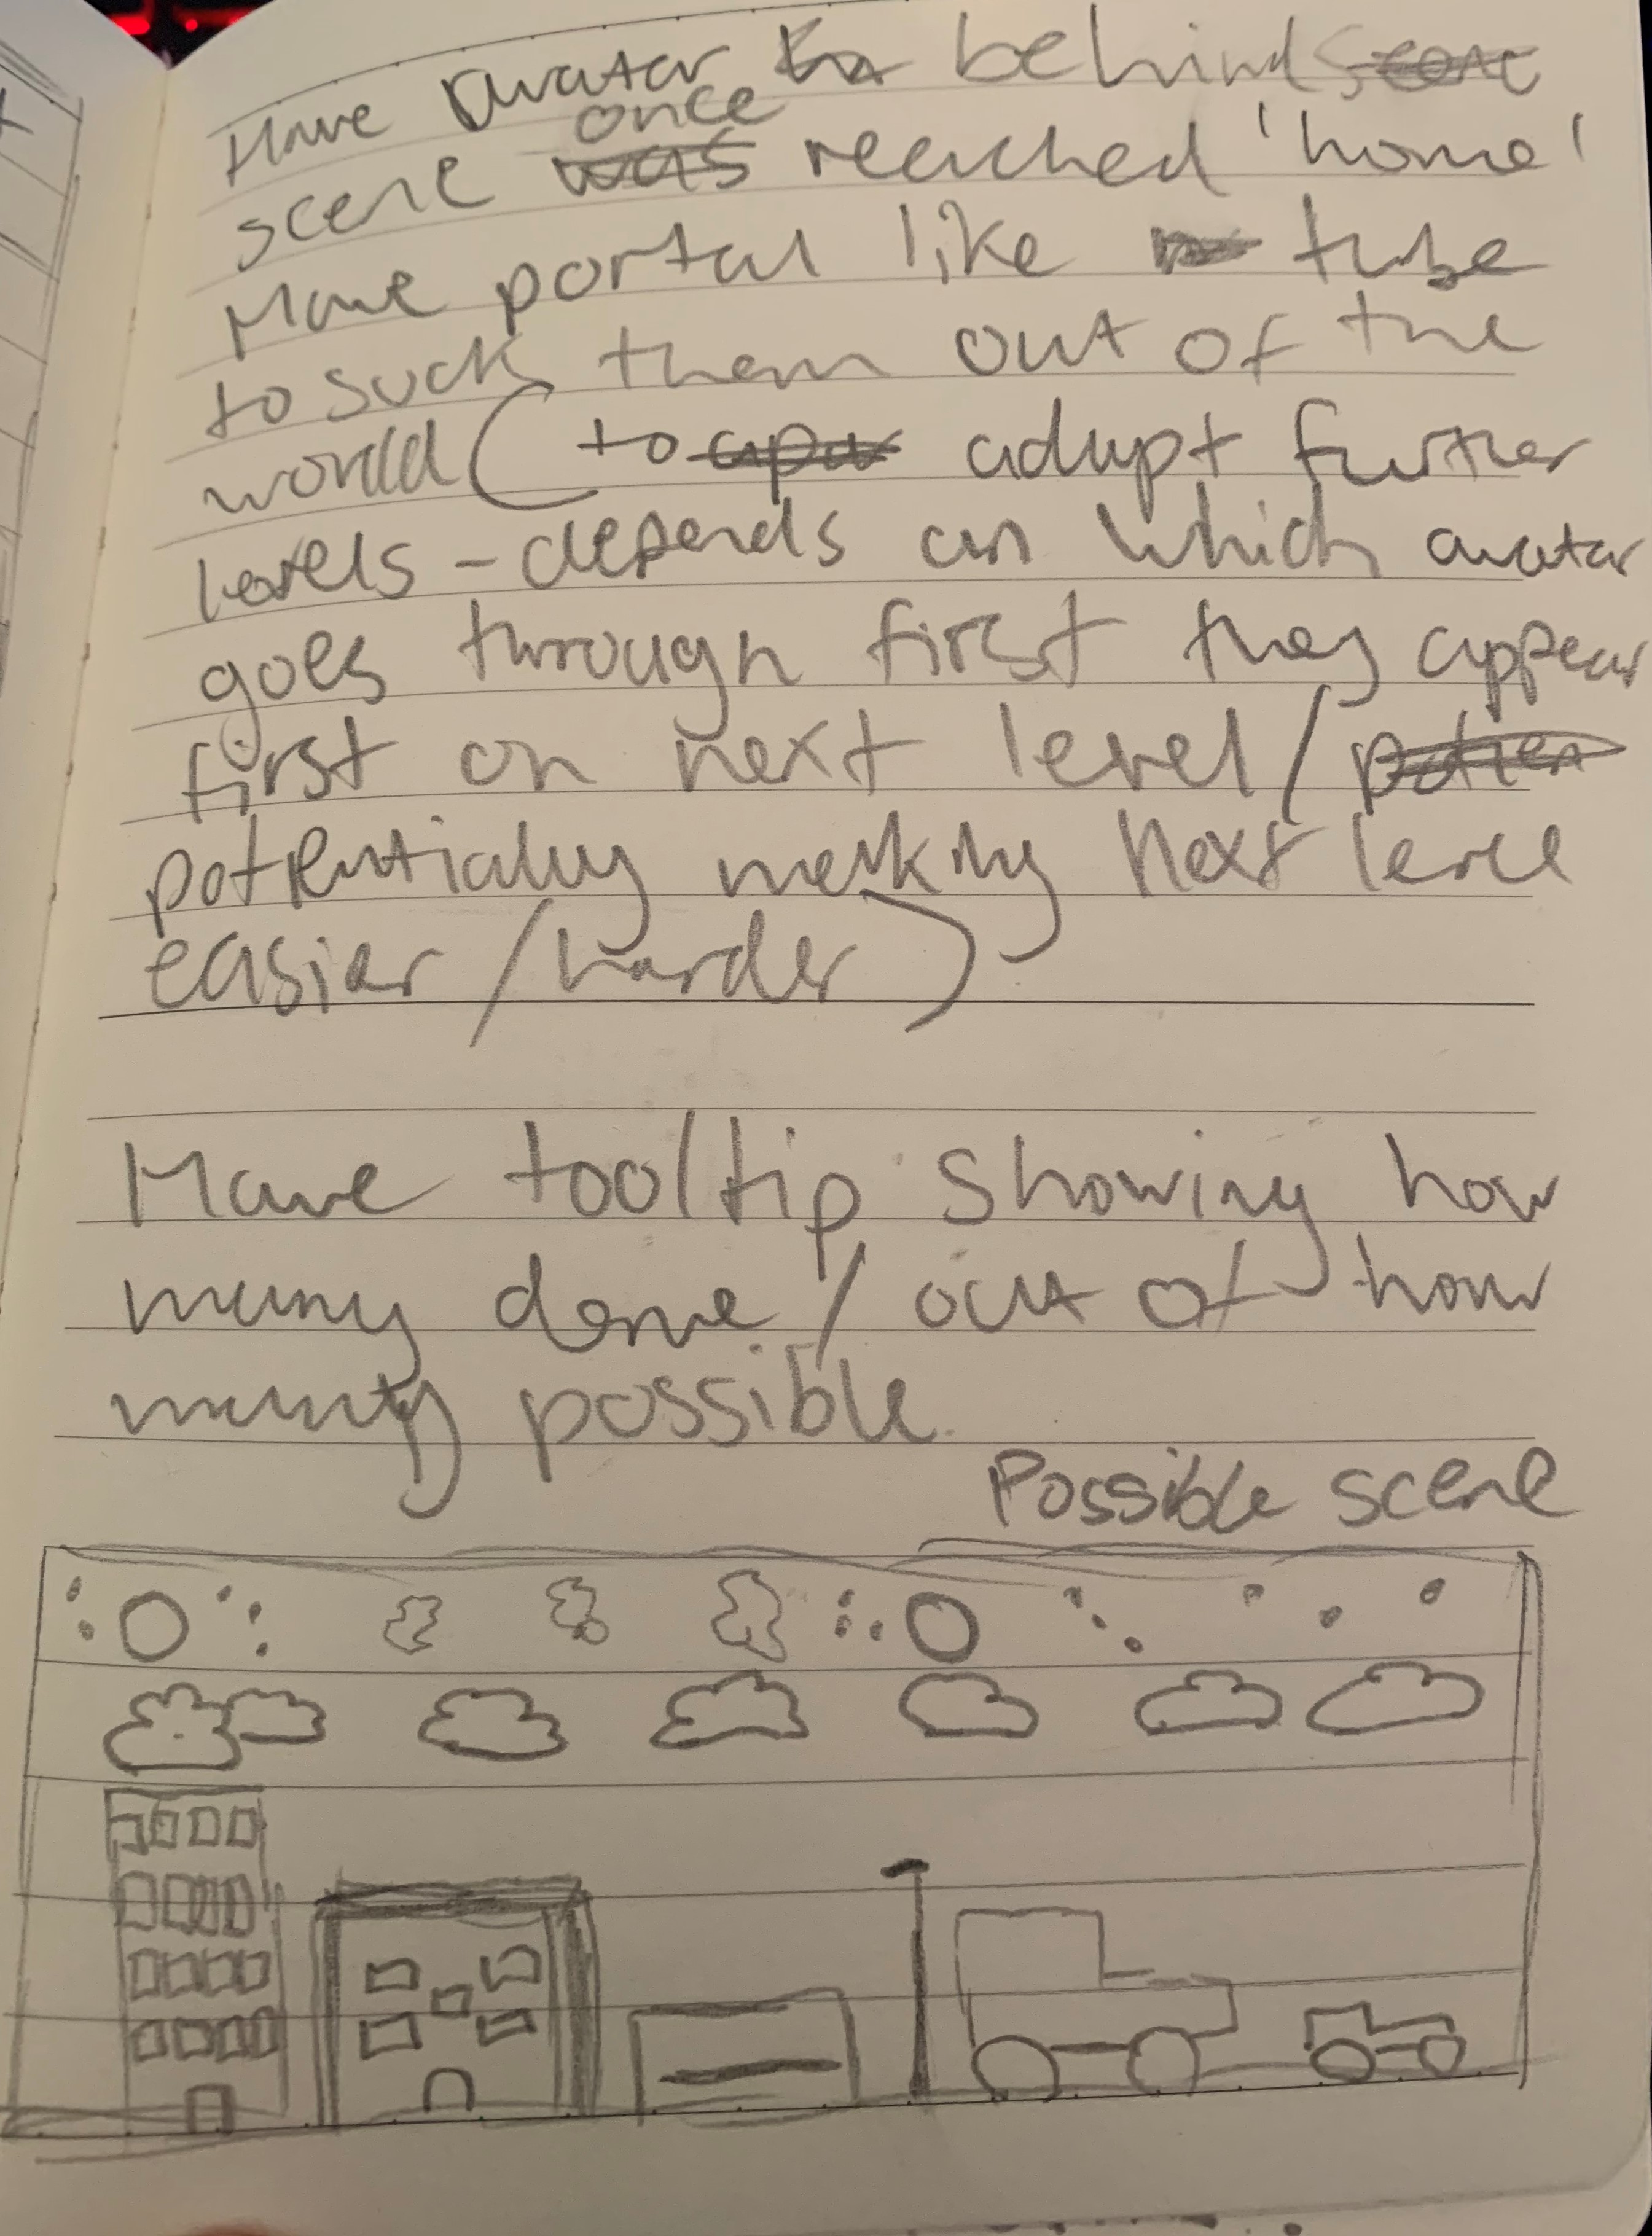 Have avatar behind
scene once reached 'home'
Have portal like tube
to suck them out of the
world (to adapt further
levels - depends on which avatar
goes through first they appear
first on next level /
potentially making next level
easier / harder)
Have tooltip showing how
many done / out of how
many possible.
Possible scene